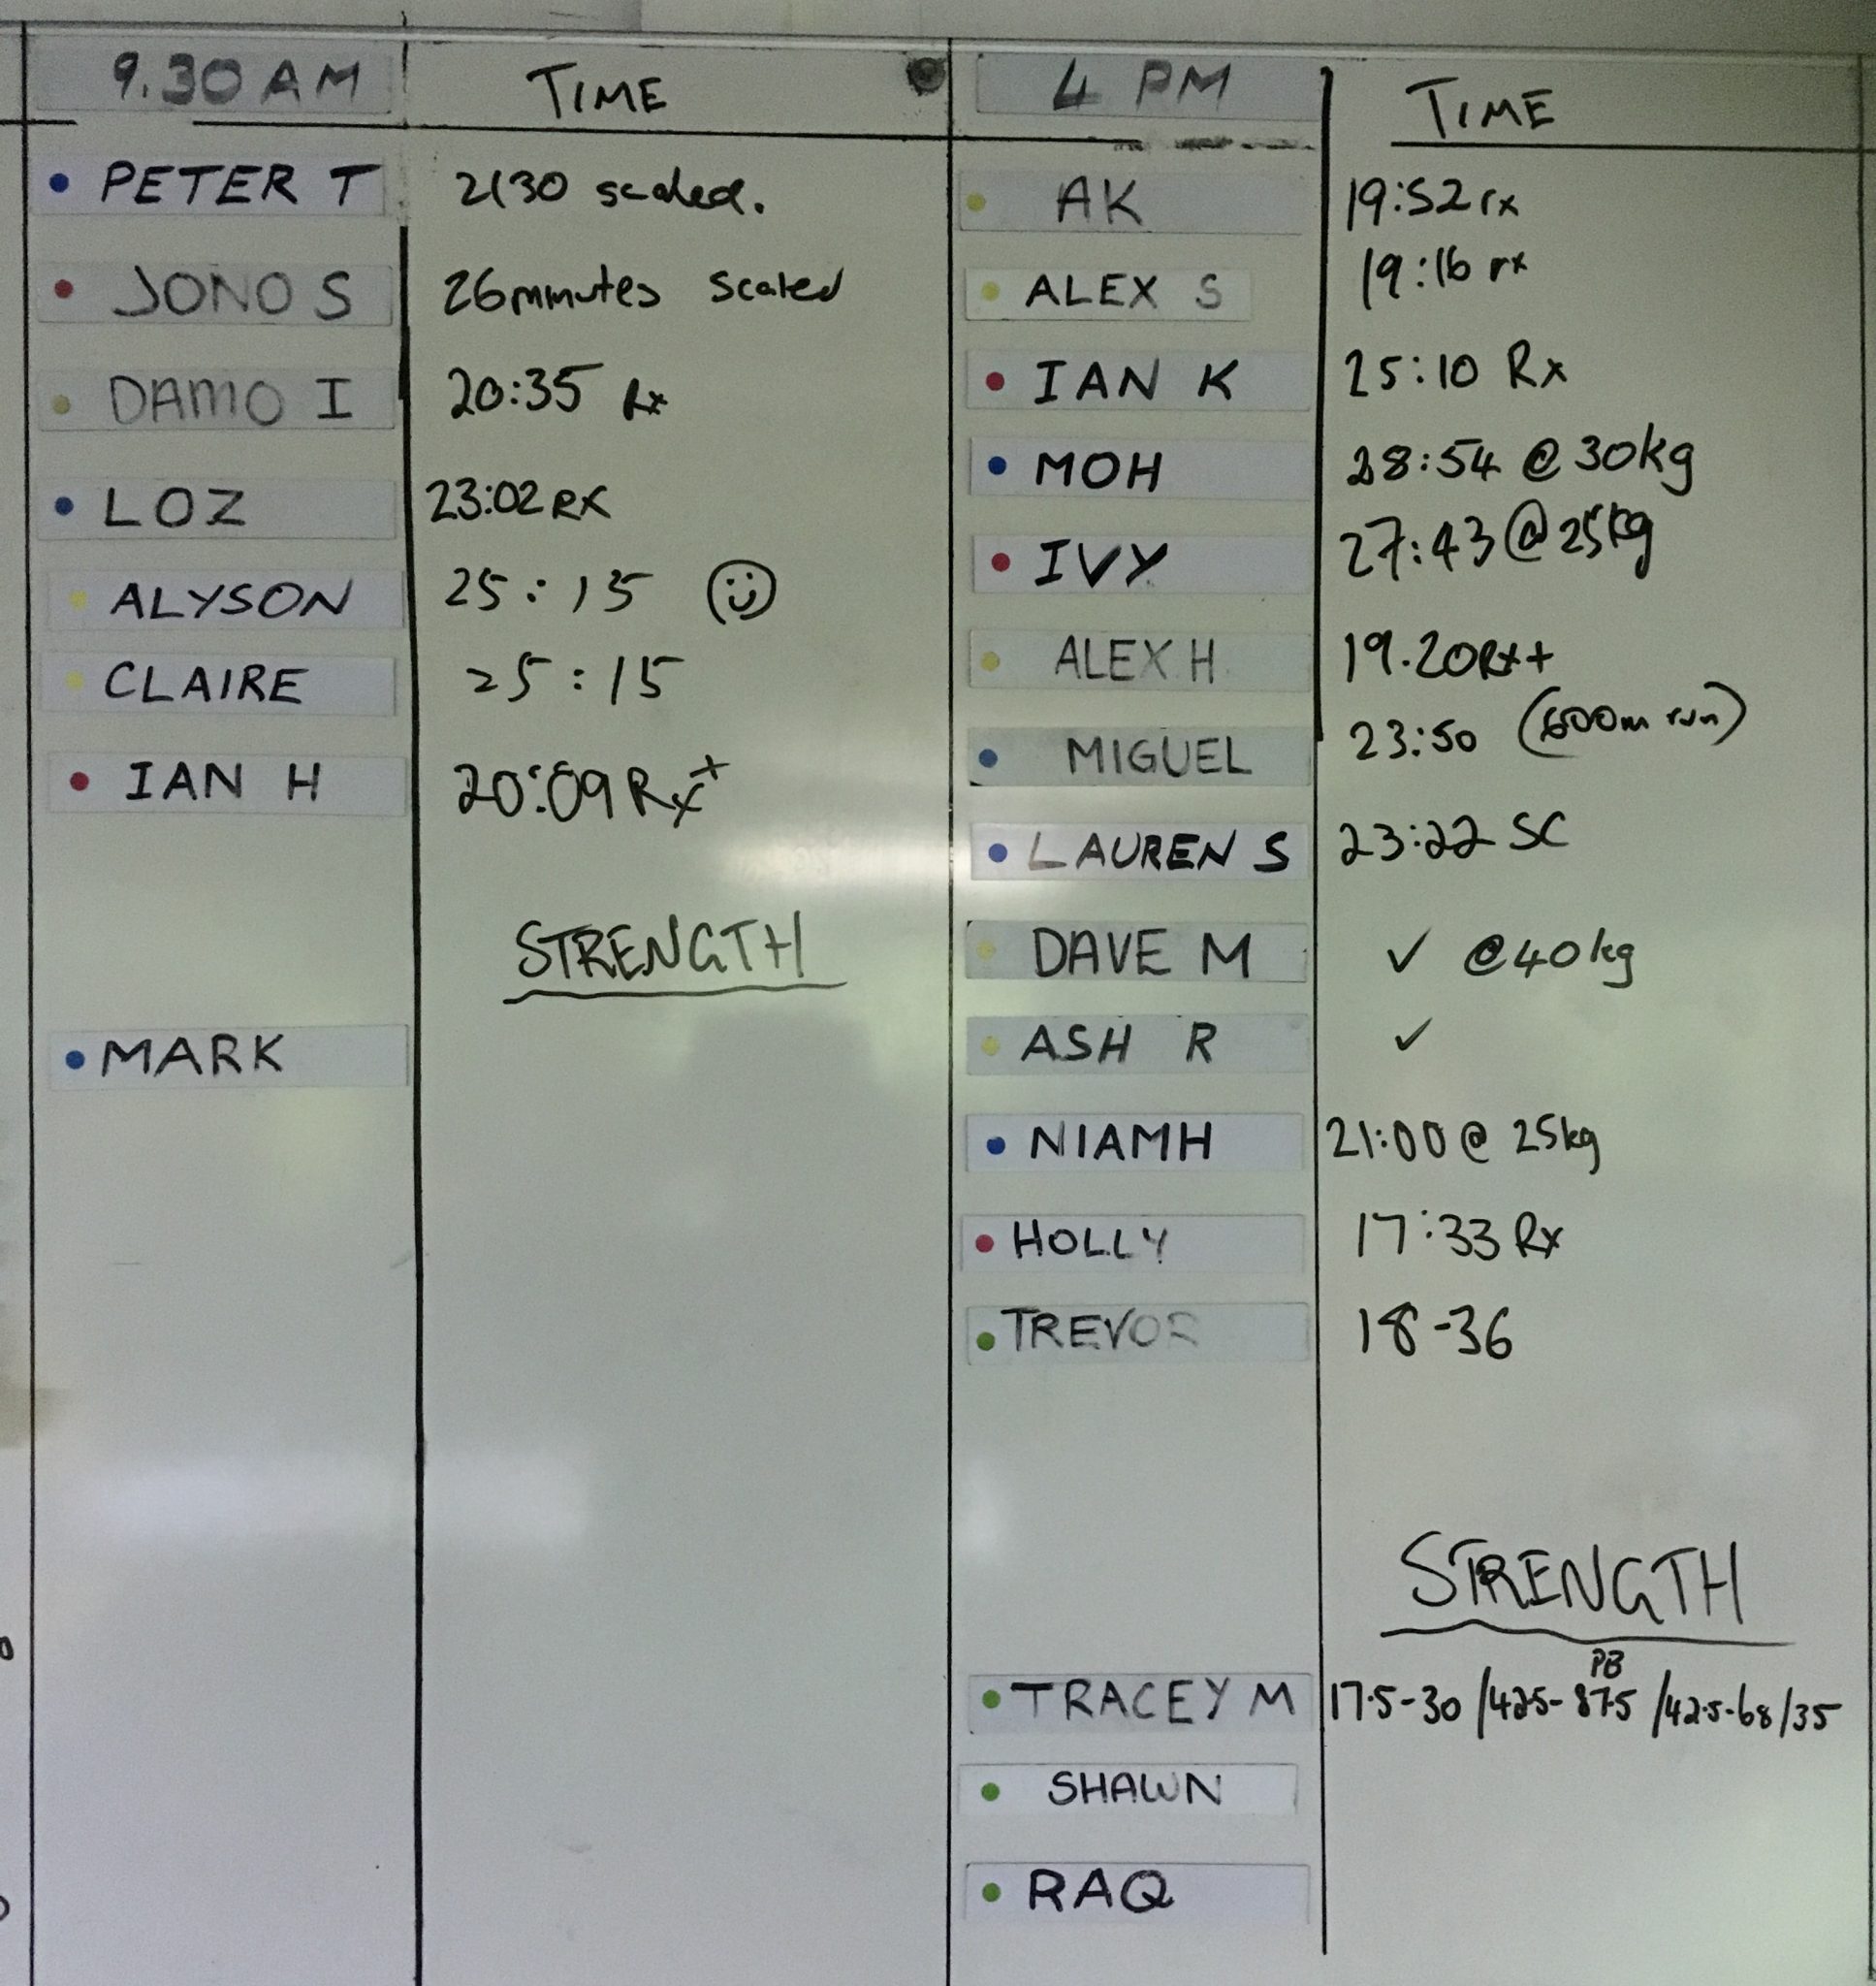 9.30 AM TIME
PETER T 2130 scaled.
JONO S 26minutes scaled
DAMO I 20:35 Rx
LOZ 23:02 RX
ALYSON 25:15
CLAIRE 25:15
IAN H 20:09 Rx+
STRENGTH
MARK
4 PM TIME
AK 19:52 rx
ALEX S 19:16 rx
IAN K 25:10 Rx
MOH 28:54 @ 30kg
IVY 27:43 @ 25kg
ALEX H 19.20 Rx+
MIGUEL 23:50 (600m run)
LAUREN S 23:22 SC
DAVE M ✓ @ 40kg
ASH R ✓
NIAMH 21:00 @ 25kg
HOLLY 17:33 Rx
TREVOR 18-36
STRENGTH
PB
TRACEY M 17.5-30 /42.5-87.5 /42.5-68/35
SHAWN
RAQ